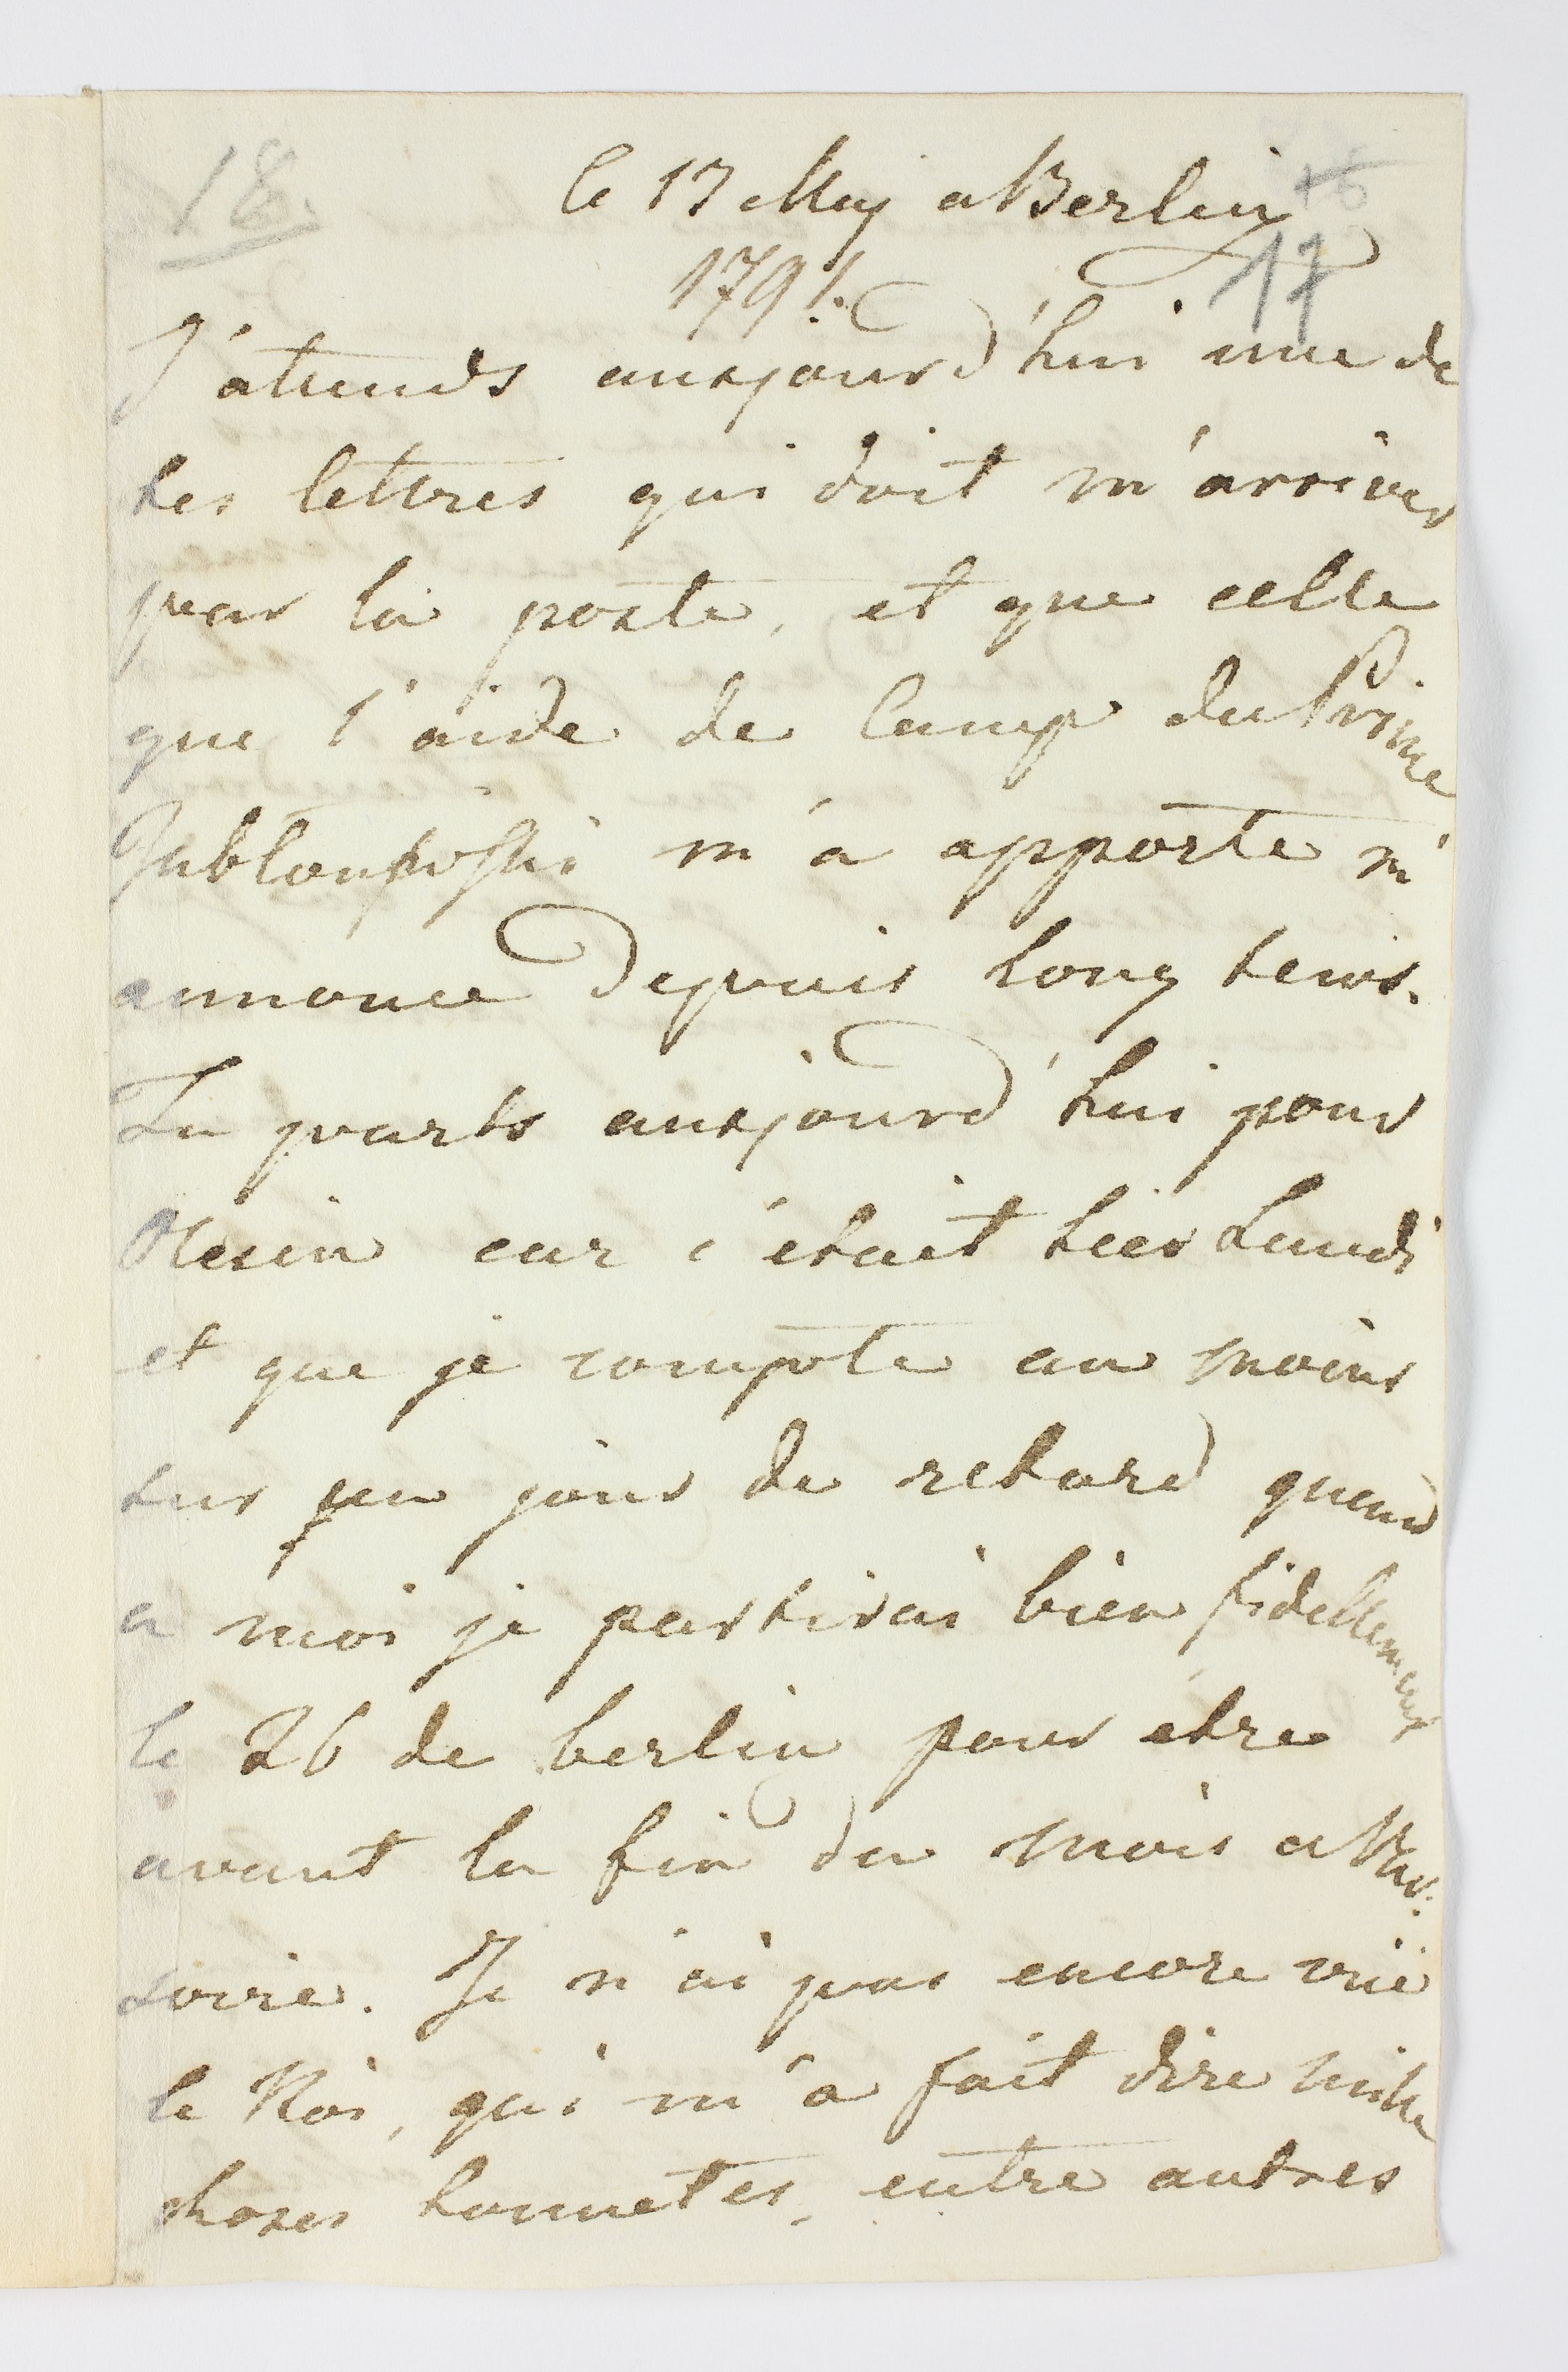 18.
le 17 May a Berlin
15
1791.
17
J'átends ausjourd'hui une de
tes lettres qui doit m'arriver
par la poste, et que celle
que l'aide de Camp du Prince
m'a apporté m'
annonce depuis long tems.
Tu parts ausjourd'hui pour
Olesin car c'etait hier Lundi
et que je compte au moins
sur un jour de retard quand
a moi je partirai bien fidellement
le 26 de berlin pour etre
avant la fin du mois a Var-
sovie. Je n'ai pas encore vüe
le Roi, qui m'a fait dire mille
choses honnetes, entre autres